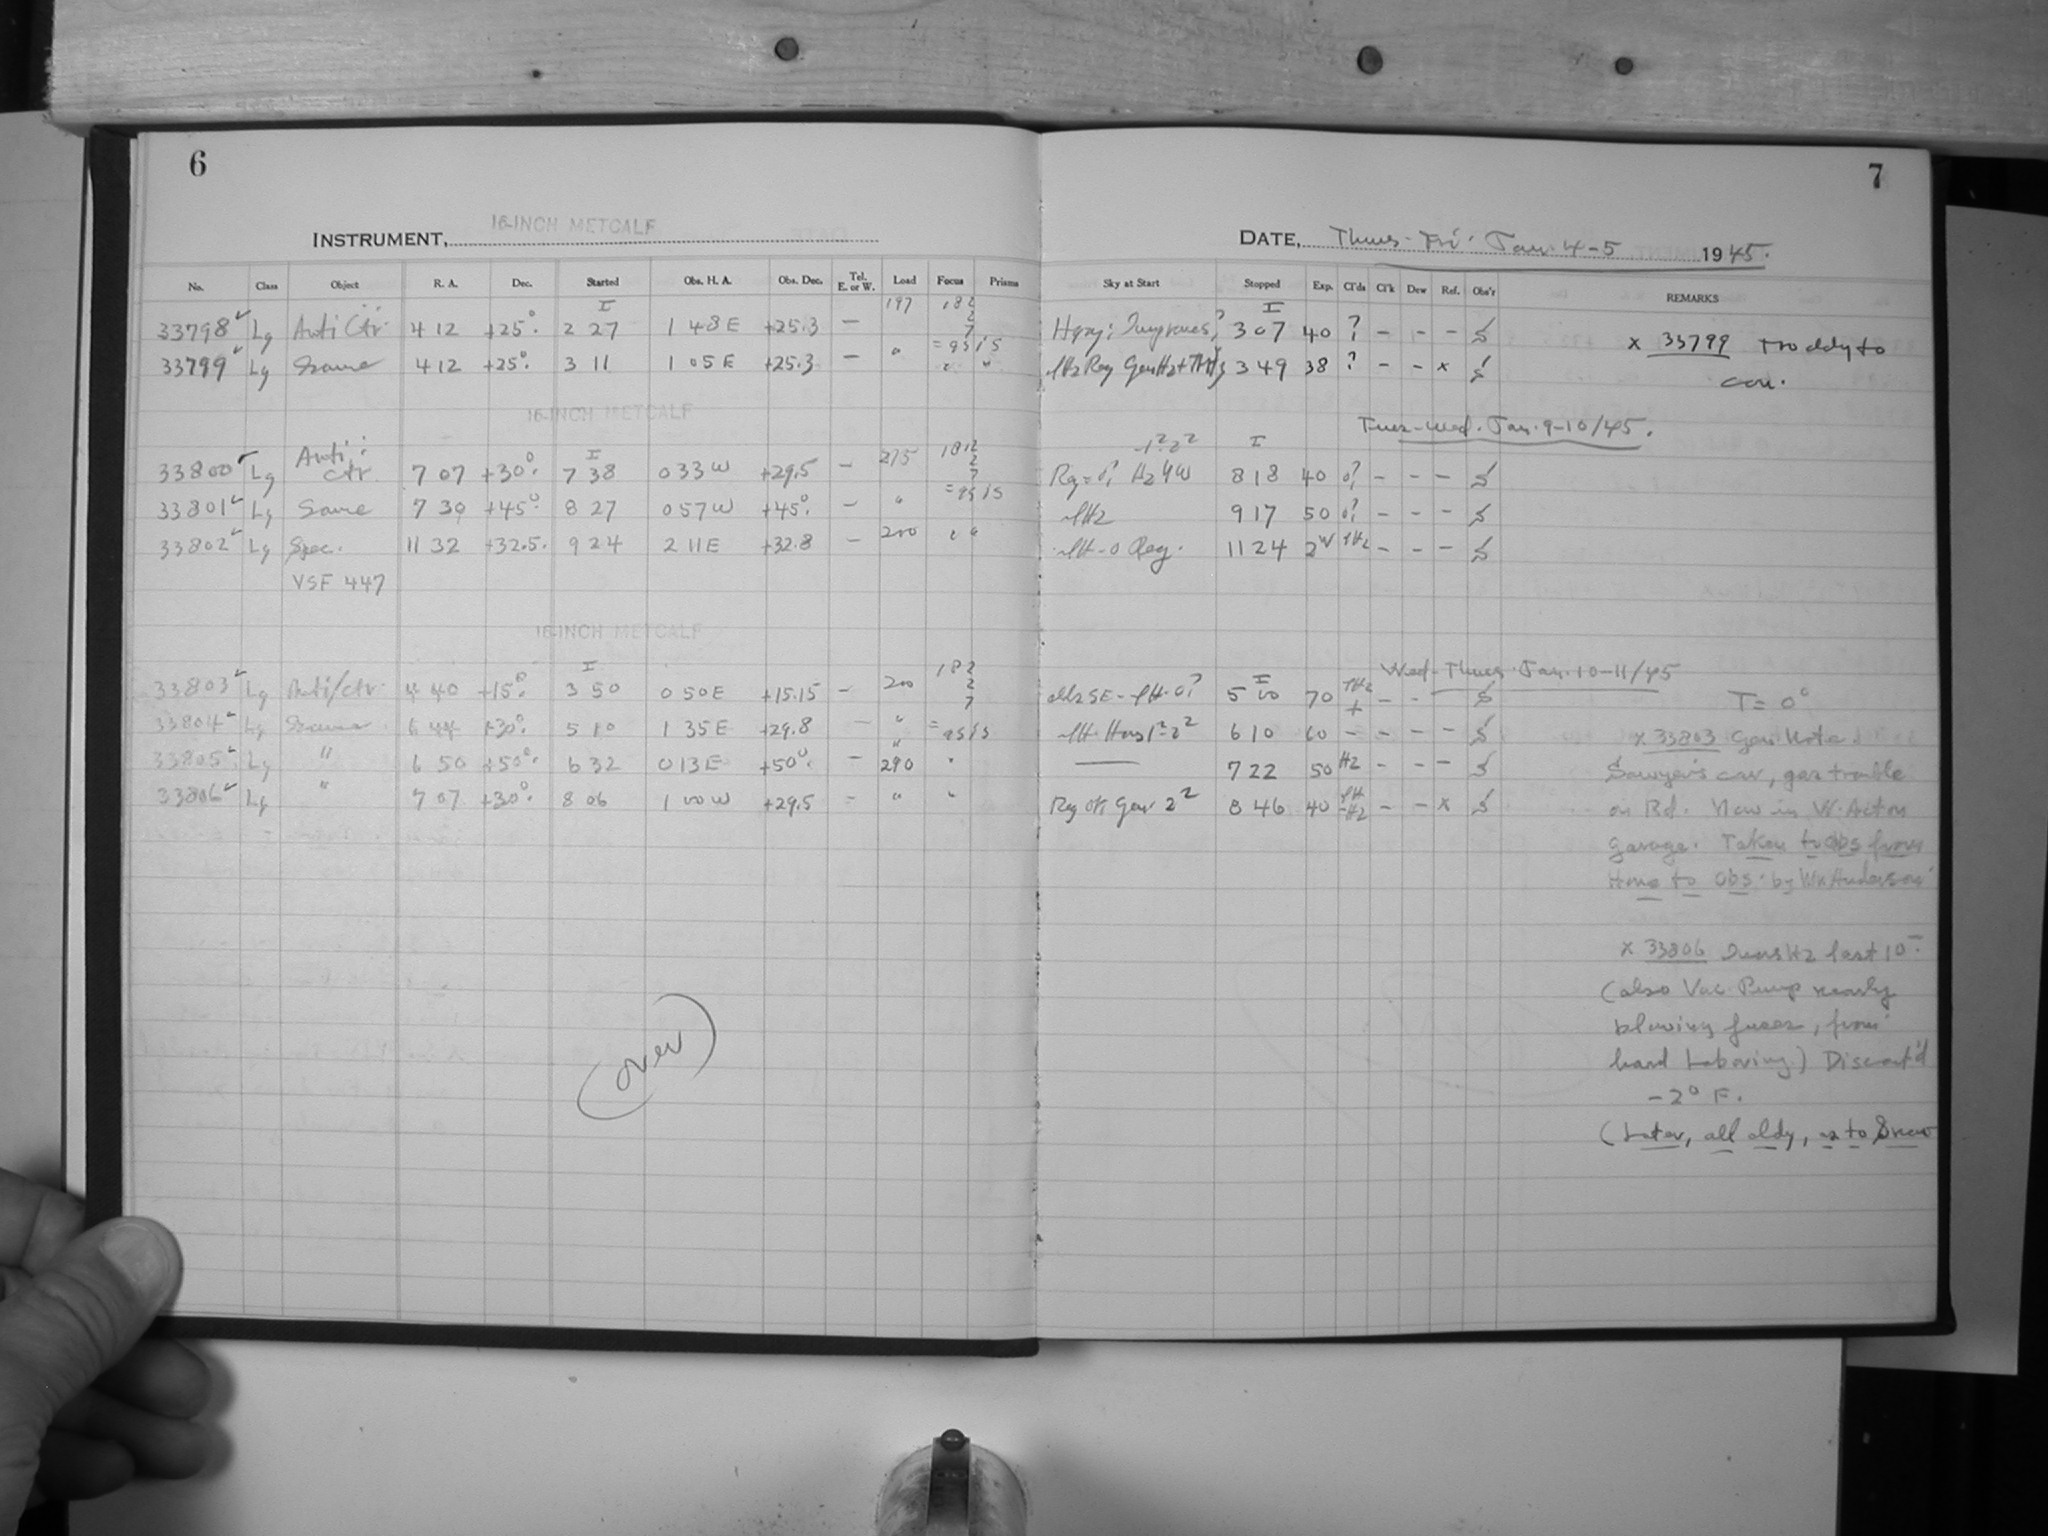 6
7
INSTRUMENT, 16-INCH METCALF
DATE, Thurs-Fri. Jan. 4-5 1945.
No. Class Object R. A. Dec. Started Obs. H. A. Obs. Dec. Tel. E. or W. Load Focus Prisms Sky at Start Stopped Exp. Cl'ds Cl'k Dew Ref. Obs'r REMARKS
I 197 182 I
33798 Lg Anti Ctr. 4 12 +25°. 2 27 1 48 E +25.3 — 2 7 3 07 40 ? – – – S
33799 Lg Same 4 12 +25°. 3 11 1 05 E +25.3 — " = 9515 " " 3 49 38 ? – – x S
x 33799 Too cldy to
con.
16-INCH METCALF
Tues-Wed. Jan. 9-10/45.
Anti I 215 1812 I
33800 Lg Ctr 7 07 +30°. 7 38 0 33 W +29.5 – 2 7 Hz 8 18 40 0? – – – S
33801 Lg Same 7 30 +45°. 8 27 0 57 W +45°. – " = 9515 9 17 50 0? – – – S
33802 Lg Spec. 11 32 +32.5. 9 24 2 11 E +32.8 – 200 " " 11 24 – – – S
VSF 447
16-INCH METCALF
Wed-Thurs. Jan. 10-11/45
I 182 I
33803 Lg Anti/ctr 4 40 +15°. 3 50 0 50 E +15.15 – 200 2 7 5 00 70 – – S
T = 0°
33804 Lg Same 6 44 +30°. 5 10 1 35 E +29.8 – " = 9515 6 10 60 – – – – S
x 33803 Gen. Note.
33805 Lg " 6 50 +50°. 6 32 0 13 E +50°. – 290 " 7 22 50 Hz – – – S
Sawyer's car, gas trouble
33806 Lg " 7 07 +30°. 8 06 1 00 W +29.5 = " " Reg OK Gen 2² 8 46 40 – – x S
on Rd. Now in W. Acton
garage. Taken to Obs from
Home to Obs. by Wm Henderson
x 33806 Hz last 10
(also Vac. Pump nearly
blowing fuses, from
hard Laboring) Discont'd
– 2° F.
(Later, all cldy, as to Snow
(over)